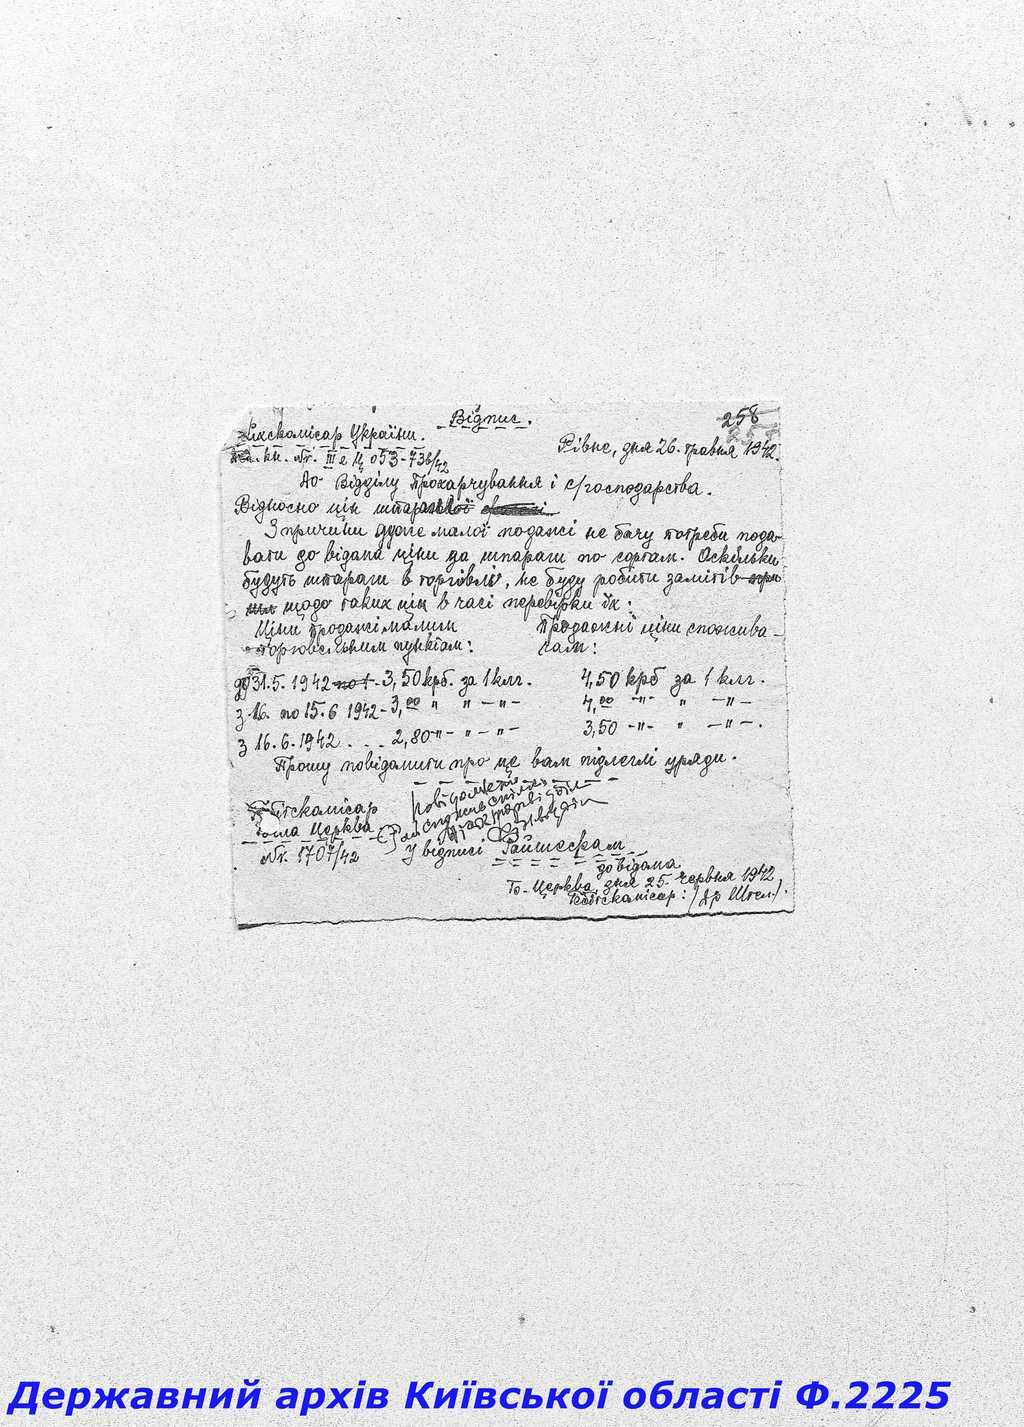 Відпис.
258
Рівне, дня 26. травня 1942.
Райхскомісар України.
Nr. III е Ц 053-73б/42
До Відділу Прохарчування і с/господарства.
Відносно цін
З причини дуже малої подажі не бачу потреби пода-
вати до відома ціни за шпараги по сортам. Оскільки
будуть шпараги в торгівлі, не буду робити замітів
щодо таких цін в часі перевірки їх:
Ціни продажі малим
торговельним пунктам:
Продажні ціни спожива-
чам:
до 31.5.1942 3,50 крб. за 1 клг. 4,50 крб за 1 клг.
з 1.6. по 15.6 1942 - 3,00 " " -"- 4,00 -"- " -"-
з 16.6.1942 . . . 2,80 -"- " -"- 3,50 -"- " -"-.
Прошу повідомити про це вам підлеглі уряди.
Гебітскомісар
Біла Церква
Nr. 1707/42
У відписі Райшефам
до відома
Б-Церква, дня 25. червня 1942
Гебітскомісар: /др Штел/.
Державний архів Київської області Ф.2225